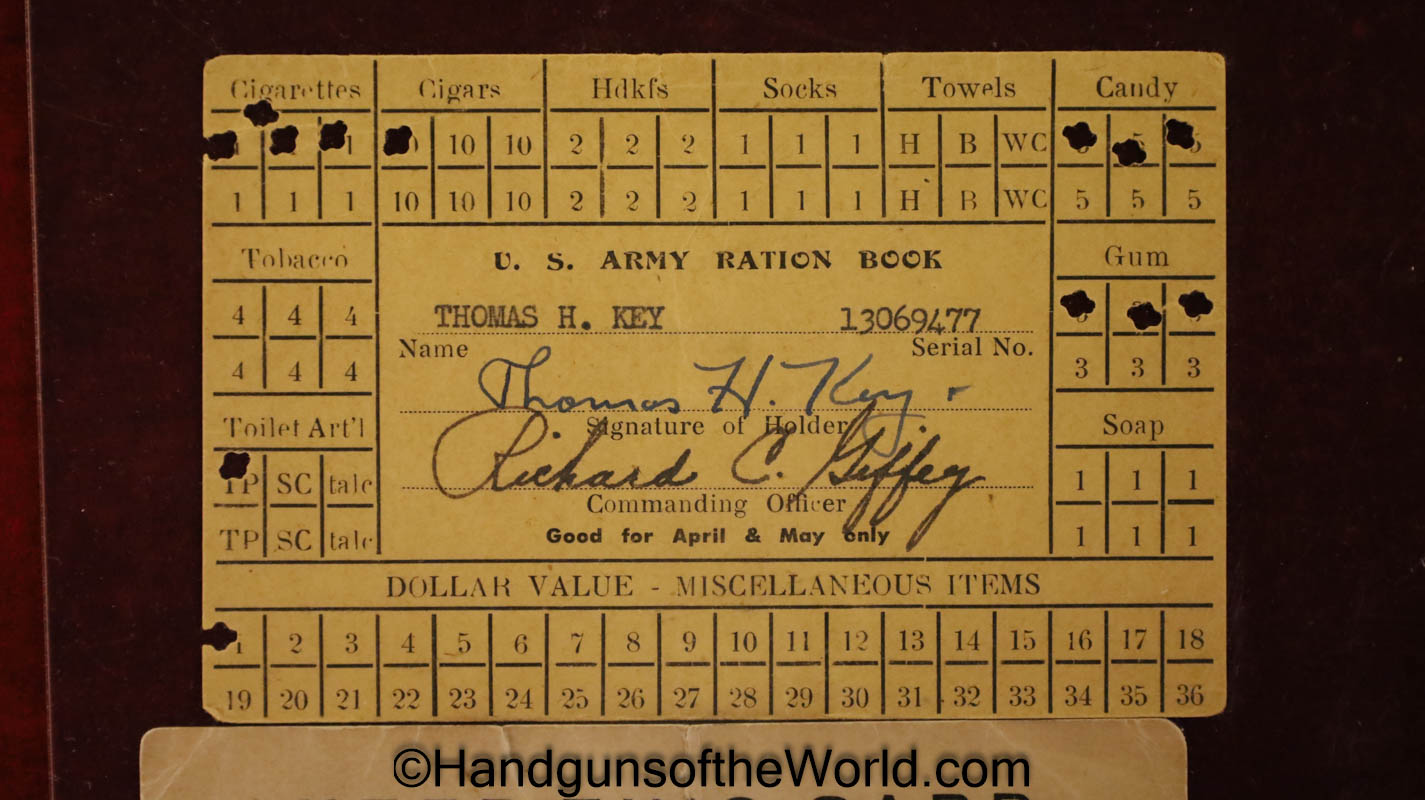 Cigarettes Cigars Hdkfs Socks Towels Candy
1 10 10 2 2 2 1 1 1 H B WC
1 1 1 10 10 10 2 2 2 1 1 1 H B WC 5 5 5
Tobacco U. S. ARMY RATION BOOK Gum
4 4 4 THOMAS H. KEY 13069477
Name Serial No.
4 4 4 Thomas H. Key 3 3 3
Toilet Art'l Signature of Holder Soap
TP SC talc Richard C. Giffey 1 1 1
Commanding Officer
TP SC talc Good for April & May only 1 1 1
DOLLAR VALUE - MISCELLANEOUS ITEMS
1 2 3 4 5 6 7 8 9 10 11 12 13 14 15 16 17 18
19 20 21 22 23 24 25 26 27 28 29 30 31 32 33 34 35 36
©HandgunsoftheWorld.com